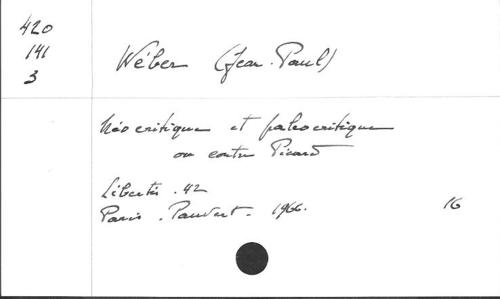 420
141
3
Wéber (Jean-Paul)
Néocritique et paléocritique
ou contre Picard
Libertés. 42
Paris. Pauvert. 1966.
16